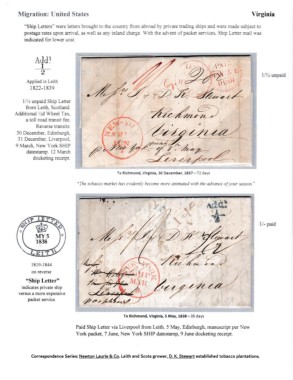 Migration: United States
Virginia
"Ship Letters" were letters brought to the country from abroad by private trading ships and were made subject to
postage rates upon arrival, as well as any inland charge. With the advent of packet services, Ship Letter mail was
indicated for lower cost.
Add!
1/2
Applied in Leith
1822-1839
1/½ unpaid Ship Letter
from Leith, Scotland.
Additional ½d Wheel Tax,
a toll road transit fee.
Reverse transits
30 December, Edinburgh,
31 December, Liverpool,
9 March, New York SHIP
datestamp, 12 March
docketing receipt.
1/½ unpaid
D. K. Stewart
Richmond
Virginia
Liverpool
To Richmond, Virginia, 30 December, 1837 - 72 days
"The tobacco market has evidently become more animated with the advance of your season."
SHIP LETTER
MY 5
1838
LEITH
1835-1844
on reverse
"Ship Letter"
indicates private ship
versus a more expensive
packet service
Add!
1/2
1/- paid
D. K. Stewart
Richmond
Virginia
To Richmond, Virginia, 5 May, 1838 - 35 days
Paid Ship Letter via Liverpool from Leith, 5 May, Edinburgh, manuscript per New
York packet, 7 June, New York SHIP datestamp, 9 June docketing receipt.
Correspondence Series: Newton Laurie & Co. Leith and Scots grower, D. K. Stewart established tobacco plantations.